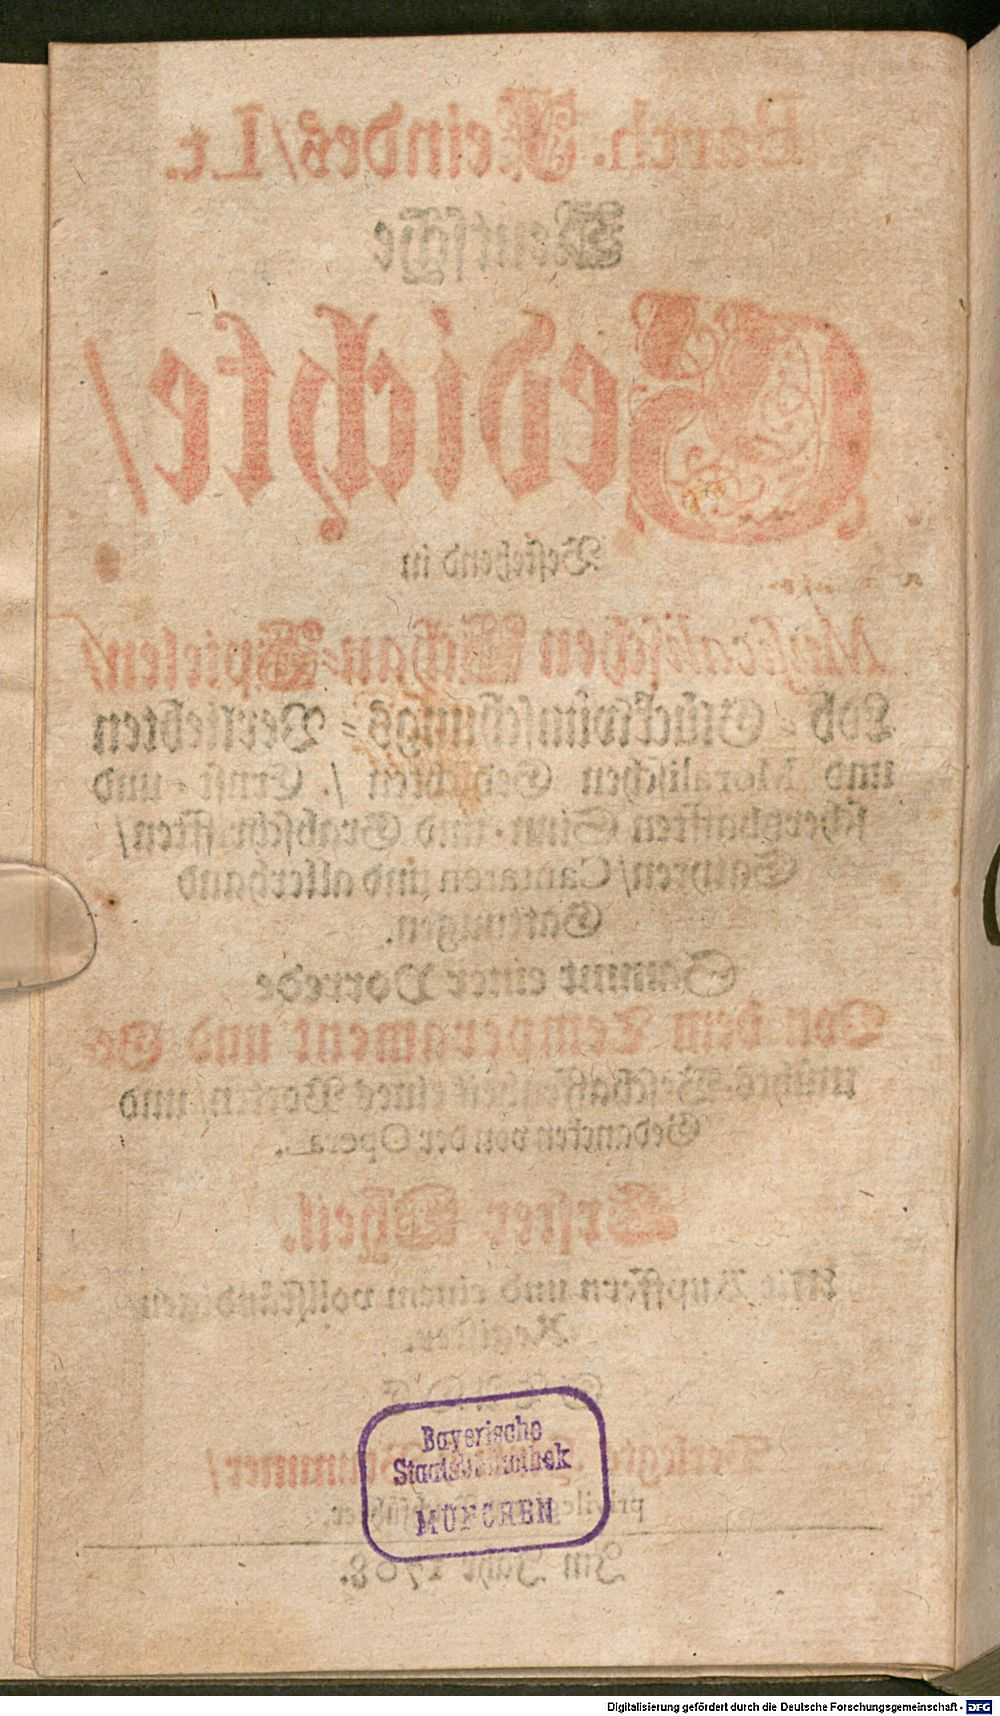 Barth. Feindes/Lt.
Deutsche
Gedichte/
Bestehend in
Musicalischen Schau-Spielen/
Lob- Glückwünschungs- Verliebten
und Moralischen Gedichten/ Ernst- und
schertzhafften Sinn- und Grabschrifften/
Satyren/Cantaten und allerhand
Gattungen.
Sammt einer Vorrede
Von dem Temperament und Ge-
müths-Beschaffenheit eines Poeten/und
Gedancken von der Opera.
Erster Theil.
Mit Kupffern und einem vollständigen
Register.
STADE
Verlegts Brummer/
privileg.
Im Jahr 1708.
Bayerische
Staatsbibliothek
MÜNCHEN
Digitalisierung gefördert durch die Deutsche Forschungsgemeinschaft - DFG